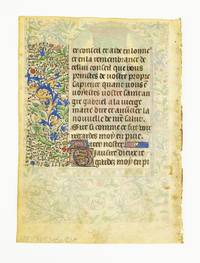 et conseil et aide en lonne
et en la remembrance de
cellui conseil que vous
preistes de vostre propre
sapience quant vous
envoiastes vostre saint an
gre gabriel a la vierge
marie dire et anuncier la
nouvelle de nre salut
Sire si comme ce fut voir
regardes moy en pitie
Pater noster
Biau sire dieux re
gardez moy en pi